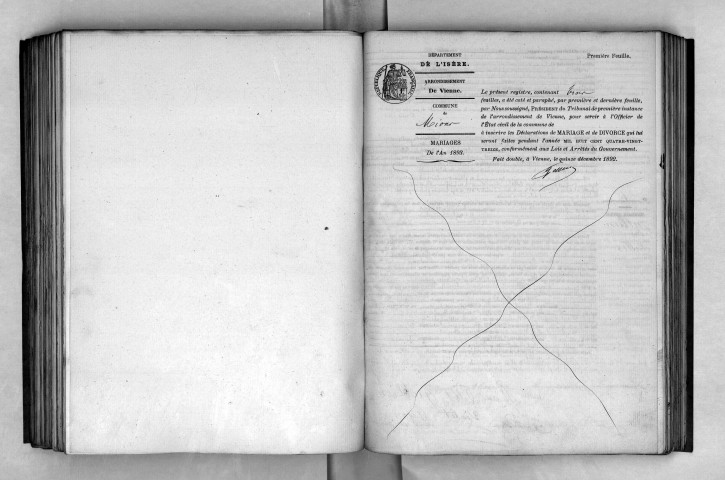 DÉPARTEMENT
DE L'ISÈRE.
ARRONDISSEMENT
De Vienne.
COMMUNE
de
MARIAGES
De l'An 1893.
RÉPUBLIQUE FRANÇAISE
Première Feuille.
Le présent registre, contenant trois
feuilles, a été coté et paraphé, par première et dernière feuille,
par Nous soussigné, PRÉSIDENT du Tribunal de première instance
de l'arrondissement de Vienne, pour servir à l'Officier de
l'État civil de la commune de
à inscrire les Déclarations de MARIAGE et de DIVORCE qui lui
seront faites pendant l'année MIL HUIT CENT QUATRE-VINGT-
TREIZE, conformément aux Lois et Arrêtés du Gouvernement.
Fait double, à Vienne, le quinze décembre 1892.